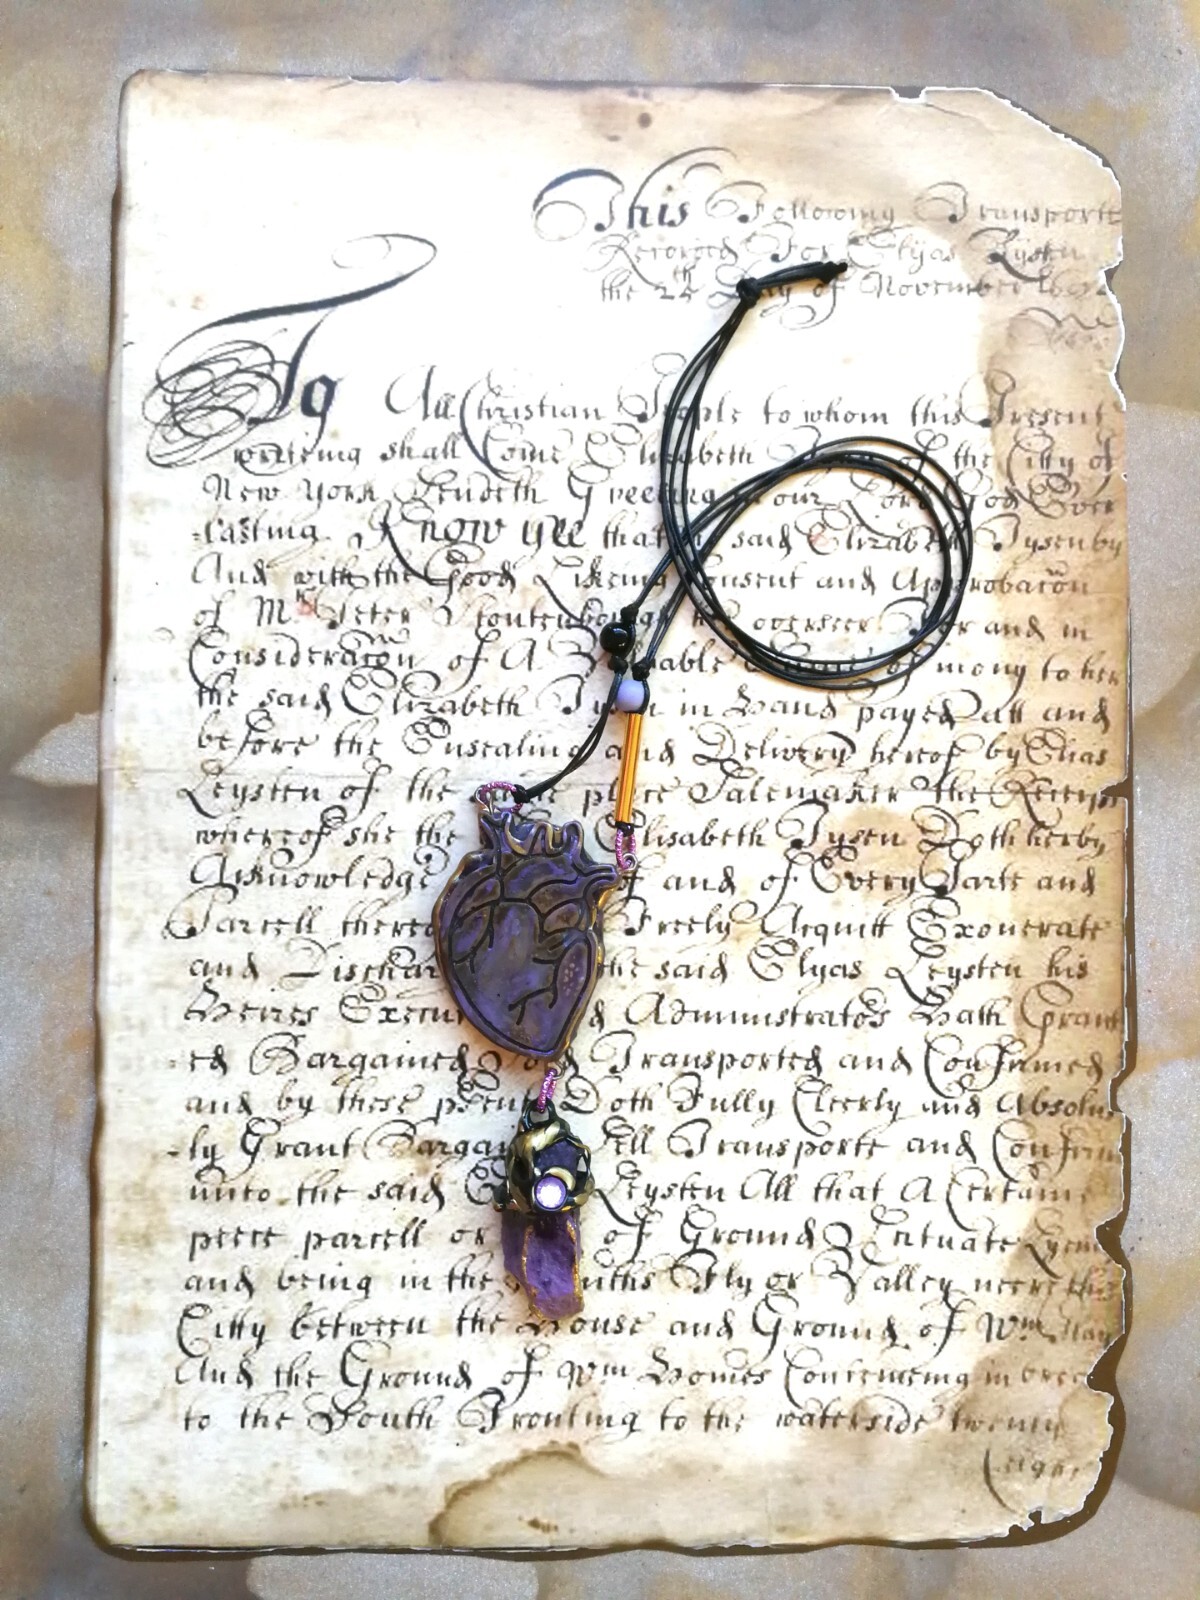 This Following Transporte
Recorded For Elyas
the 25th Day of November
To All Christian People to whom this Present
writeing shall Come Elizabeth of the Citty of
New York Sendeth Greeting our Lord God Ever
-lasting. Know yee that said Elizabeth Tysen by
And with the Good Likeing Consent and Approbacon
of Mr Peter overseer and in
Consideracon of A Valuable of mony to her
the said Elizabeth in Hand payed att and
before the Ensealing and Delivery hereof by Elias
Leysten of the place Salemaker the Receipt
whereof she the Elisabeth Tysen Doth herby
Acknowledge of and of Every Parte and
Parcell Freely Acquitt Exonerate
and the said Elyas Leysten his
Heires Administrators Hath Grant
-ed Bargained Sold Transported and Confirmed
and by these Doth Fully Cleerly and
-ly Grant Sell Transporte and
unto the said Leysten All that A Certaine
peece parcell or of Ground Scituate
and being in the Fly or Valley neere this
Citty between the House and Ground of Wm
And the Ground of Wm Homes Conteineing in
to the South Fronting to the waterside twenty